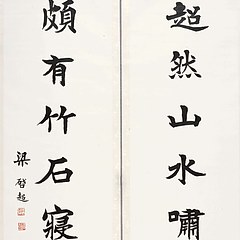 超然山水嘯
頗有竹石寝
梁啓超